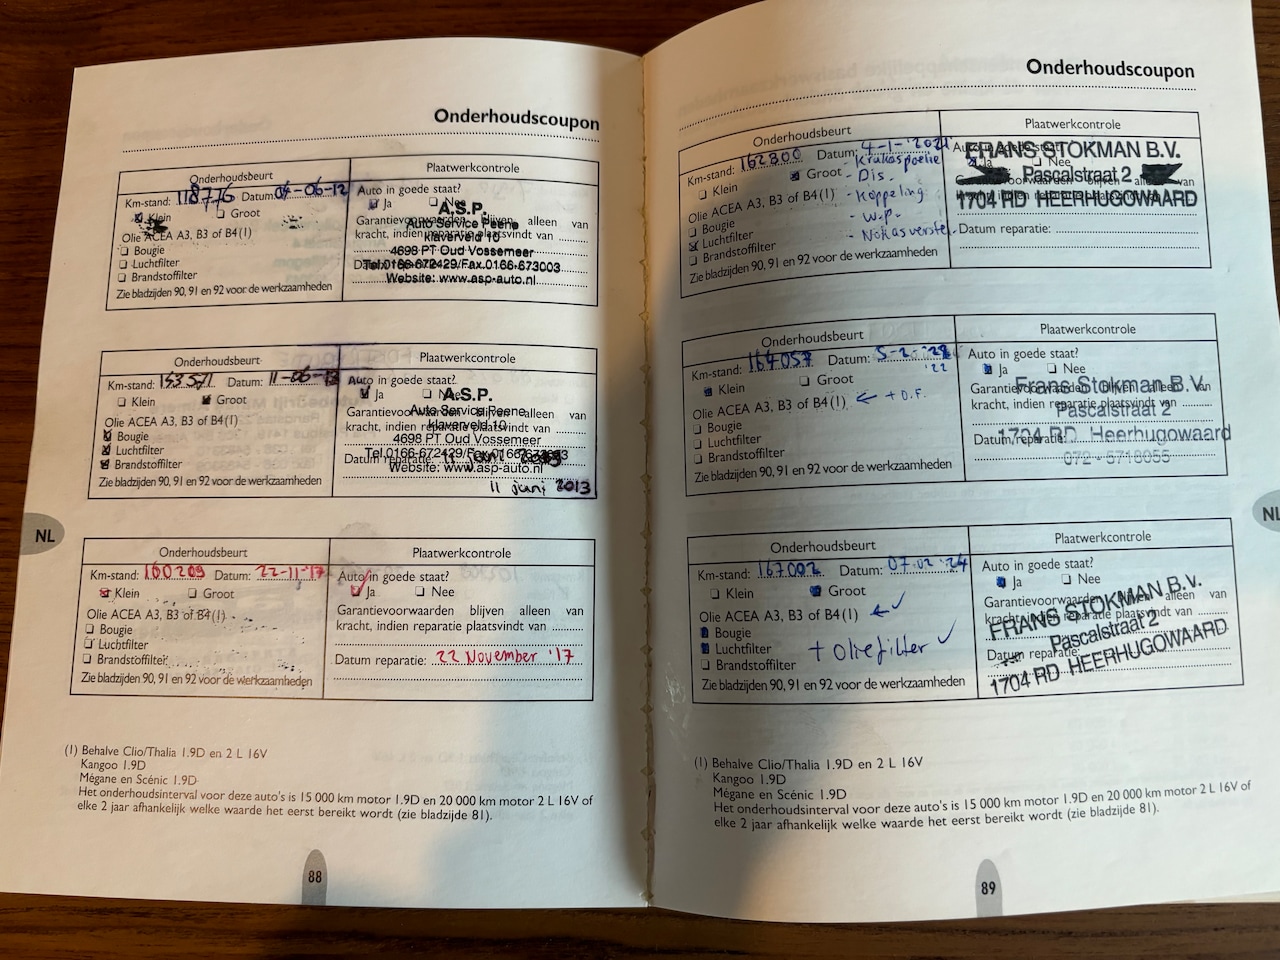 Onderhoudscoupon
Onderhoudsbeurt
Km-stand: 118776 Datum: 04-06-12
Klein Groot
Olie ACEA A3, B3 of B4(1)
Bougie
Luchtfilter
Brandstoffilter
Zie bladzijden 90, 91 en 92 voor de werkzaamheden
Plaatwerkcontrole
Auto in goede staat?
Ja Nee
Garantievoorwaarden blijven alleen van
kracht, indien reparatie plaatsvindt van
A.S.P.
Auto Service Peene
klaverveld 10
4698 PT Oud Vossemeer
Tel.0166-672429/Fax.0166-673003
Website: www.asp-auto.nl
Onderhoudsbeurt
Km-stand: 143571 Datum: 11-06-13
Klein Groot
Olie ACEA A3, B3 of B4(1)
Bougie
Luchtfilter
Brandstoffilter
Zie bladzijden 90, 91 en 92 voor de werkzaamheden
Plaatwerkcontrole
Auto in goede staat?
Ja Nee
Garantievoorwaarden blijven alleen van
kracht, indien reparatie plaatsvindt van
Datum reparatie: 11 juni 2013
A.S.P.
Auto Service Peene
klaverveld 10
4698 PT Oud Vossemeer
Tel.0166-672429/Fax.0166-673003
Website: www.asp-auto.nl
11 juni 2013
Onderhoudsbeurt
Km-stand: 160209 Datum: 22-11-'17
Klein Groot
Olie ACEA A3, B3 of B4(1)
Bougie
Luchtfilter
Brandstoffilter
Zie bladzijden 90, 91 en 92 voor de werkzaamheden
Plaatwerkcontrole
Auto in goede staat?
Ja Nee
Garantievoorwaarden blijven alleen van
kracht, indien reparatie plaatsvindt van
Datum reparatie: 22 November '17
(1) Behalve Clio/Thalia 1.9D en 2 L 16V
Kangoo 1.9D
Mégane en Scénic 1.9D
Het onderhoudsinterval voor deze auto's is 15 000 km motor 1.9D en 20 000 km motor 2 L 16V of
elke 2 jaar afhankelijk welke waarde het eerst bereikt wordt (zie bladzijde 81).
NL
88
Onderhoudscoupon
Onderhoudsbeurt
Km-stand: 162300 Datum: 4-1-2021
Klein Groot
Olie ACEA A3, B3 of B4(1)
Bougie
Luchtfilter
Brandstoffilter
Zie bladzijden 90, 91 en 92 voor de werkzaamheden
- Krukaspoelie
- Dis.
- Koppeling
- W.P.
- Nokasverstel.
Plaatwerkcontrole
Auto in goede staat?
Ja Nee
Garantievoorwaarden blijven alleen van
Datum reparatie:
FRANS STOKMAN B.V.
Pascalstraat 2
1704 RD HEERHUGOWAARD
Onderhoudsbeurt
Km-stand: 164057 Datum:
'22
Klein Groot
Olie ACEA A3, B3 of B4(1) ← + O.F.
Bougie
Luchtfilter
Brandstoffilter
Zie bladzijden 90, 91 en 92 voor de werkzaamheden
Plaatwerkcontrole
Auto in goede staat?
Ja Nee
Garantievoorwaarden blijven alleen van
kracht, indien reparatie plaatsvindt van
Datum reparatie:
Frans Stokman B.V.
Pascalstraat 2
1704 RD Heerhugowaard
072 - 5718055
Onderhoudsbeurt
Km-stand: 167002 Datum: 07-02-'24
Klein Groot
Olie ACEA A3, B3 of B4(1) ← ✓
Bougie
Luchtfilter + oliefilter ✓
Brandstoffilter
Zie bladzijden 90, 91 en 92 voor de werkzaamheden
Plaatwerkcontrole
Auto in goede staat?
Ja Nee
Garantievoorwaarden blijven alleen van
kracht, indien reparatie plaatsvindt van
Datum reparatie:
FRANS STOKMAN B.V.
Pascalstraat 2
1704 RD HEERHUGOWAARD
(1) Behalve Clio/Thalia 1.9D en 2 L 16V
Kangoo 1.9D
Mégane en Scénic 1.9D
Het onderhoudsinterval voor deze auto's is 15 000 km motor 1.9D en 20 000 km motor 2 L 16V of
elke 2 jaar afhankelijk welke waarde het eerst bereikt wordt (zie bladzijde 81).
NL
89